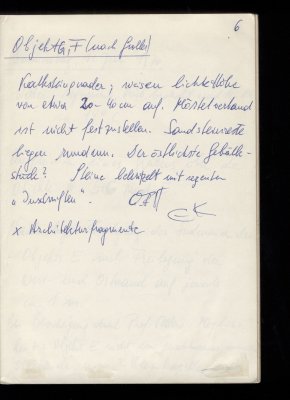 6
Objekt G, F (nach Gullei)
Kalksteinquader, weisen lichte Höhe
von etwa 20-40 cm auf. Mörtelverband
ist nicht festzustellen. Sandsteinreste
liegen rundum. Der östlichste Gebälk-
stück? Steine bekritzelt mit rezenten
„Inschriften".
x Architekturfragmente